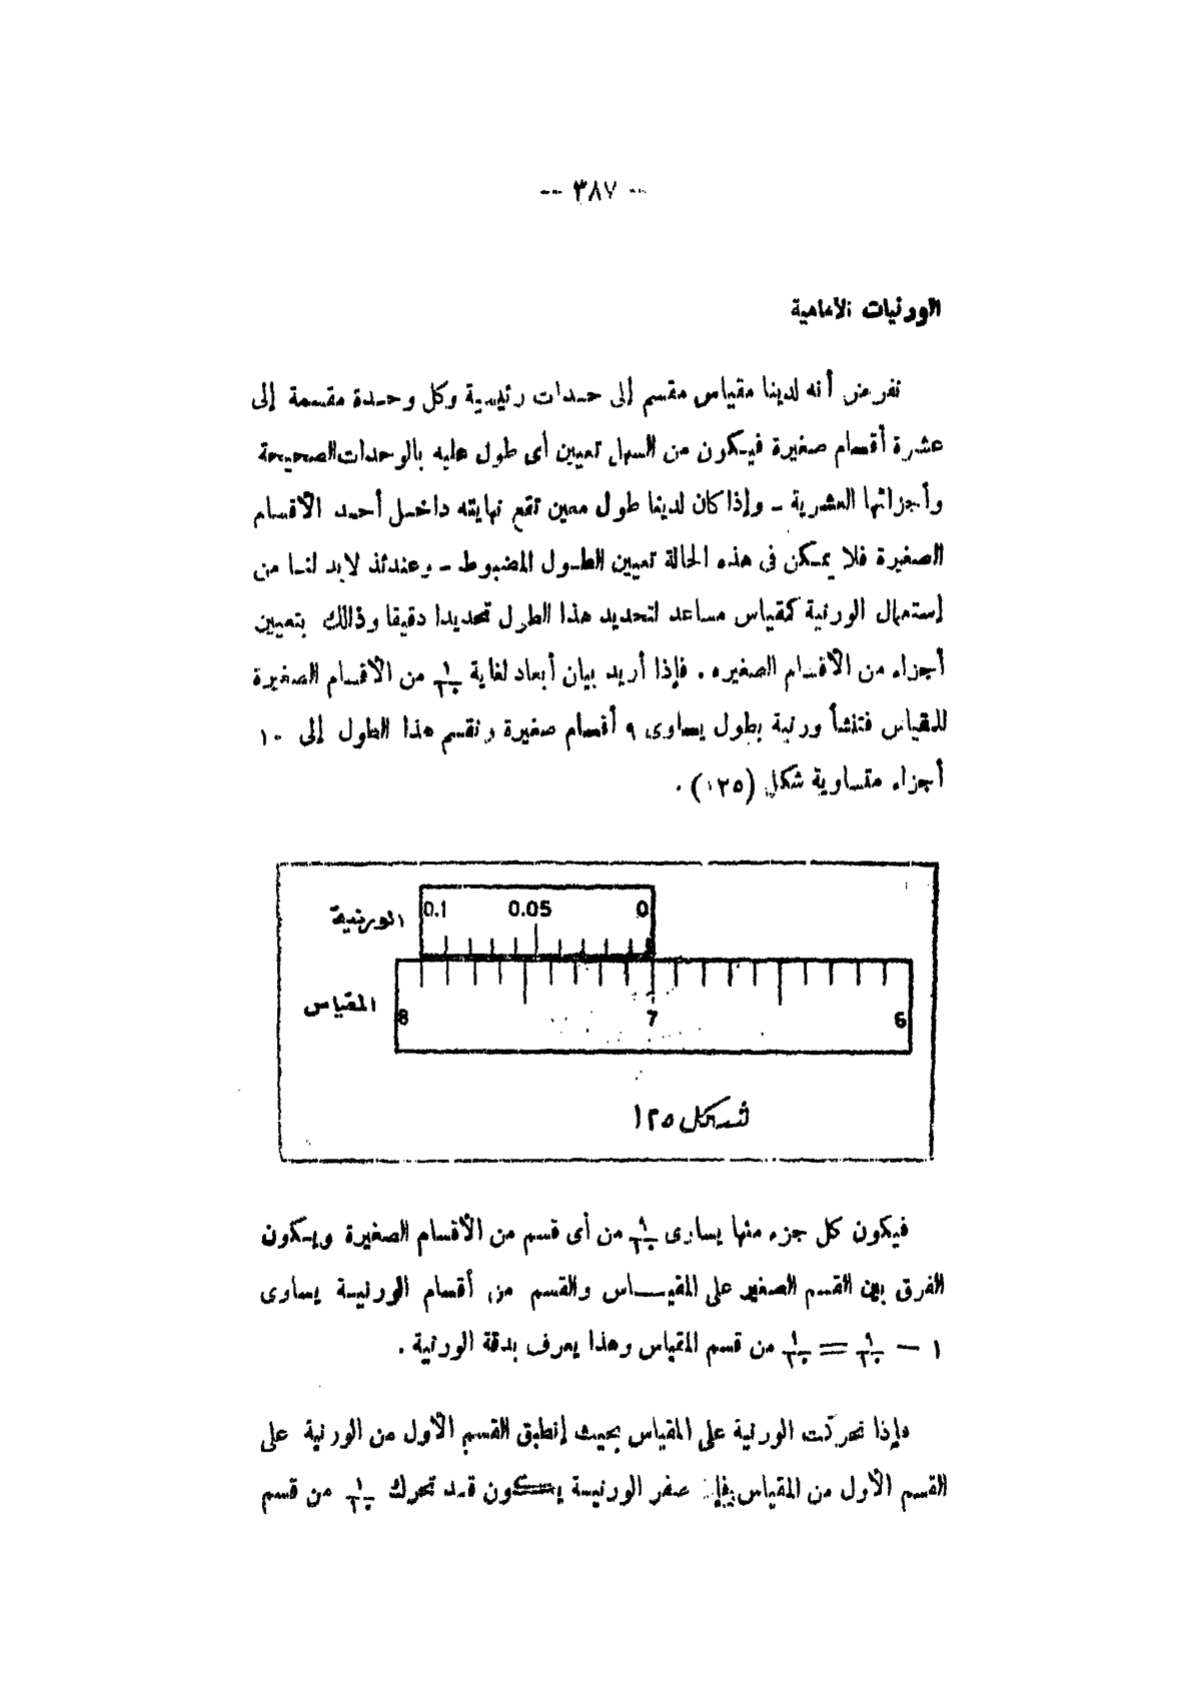 -- ٣٨٧ --
الورنيات الأمامية
نفرض أنه لدينا مقياس مقسم إلى وحدات رئيسية وكل وحدة مقسمة إلى
عشرة أقسام صغيرة فيكون من السهل تعيين أى طول عليه بالوحدات الصحيحة
وأجزائها العشرية - وإذا كان لدينا طول معين تقع نهايته داخل أحد الأقسام
الصغيرة فلا يمكن فى هذه الحالة تعيين الطول المضبوط - وعندئذ لابد لنا من
إستعمال الورنية كمقياس مساعد لتحديد هذا الطول تحديدا دقيقا وذالك بتعيين
أجزاء من الأقسام الصغيره . فإذا أريد بيان أبعاد لغاية ١/١٠ من الأقسام الصغيرة
للمقياس فتنشأ ورنية بطول يساوى ٩ أقسام صغيرة ونقسم هذا الطول إلى ١٠
أجزاء متساوية شكل (١٢٥) .
الورنية 0.1 0.05 0
المقياس 8 7 6
شكل ١٢٥
فيكون كل جزء منها يساوى ٩/١٠ من أى قسم من الأقسام الصغيرة ويكون
الفرق بين القسم الصغير على المقياس والقسم من أقسام الورنية يساوى
١ - ٩/١٠ = ١/١٠ من قسم المقياس وهذا يعرف بدقة الورنية .
وإذا تحركت الورنية على المقياس بحيث إنطبق القسم الأول من الورنية على
القسم الأول من المقياس فإن صفر الورنية يكون قد تحرك ١/١٠ من قسم